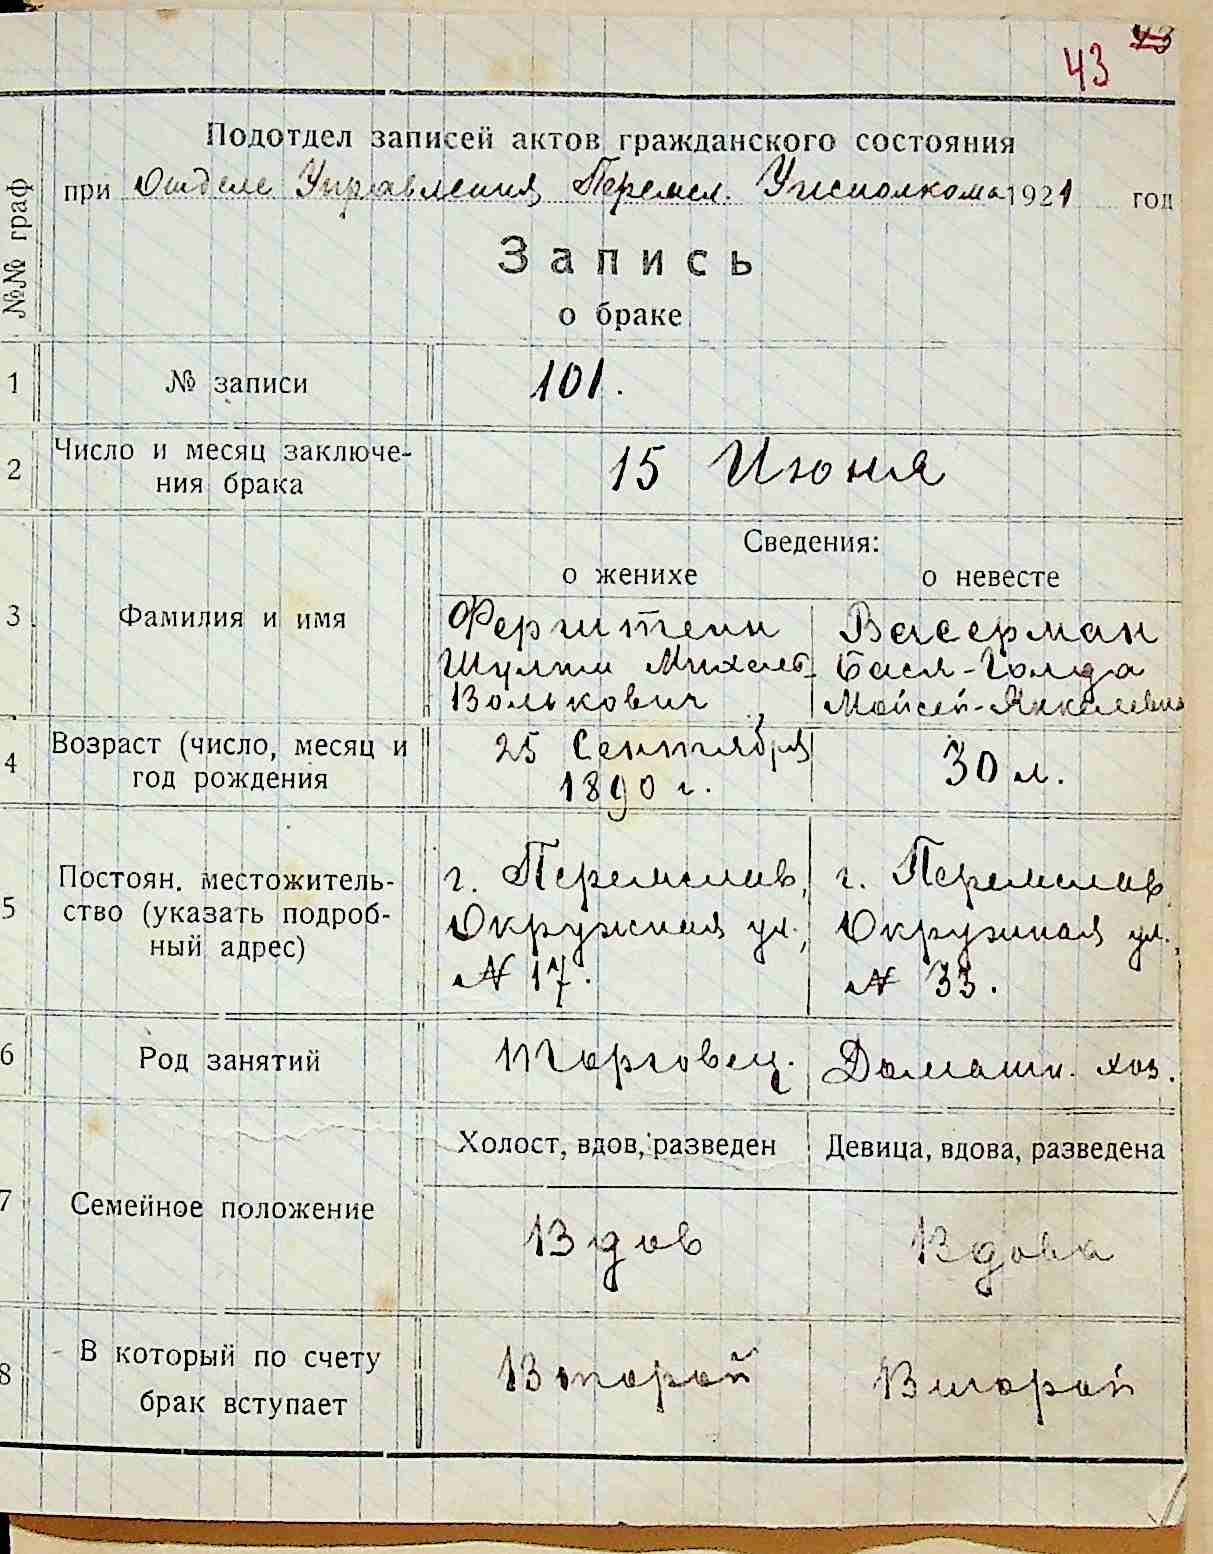 43
43
Подотдел записей актов гражданского состояния
при Отделе Управления Перемсл. Уисполкома 1921 год
№№ граф
Запись
о браке
1 № записи 101.
2 Число и месяц заключе-
ния брака 15 Июня
Сведения:
о женихе о невесте
3 Фамилия и имя Ферштенн Васерман
Шулим Михель- Бася-Голда
Волькович Мойсей-Янкелевна
4 Возраст (число, месяц и 25 Сентября 30 л.
год рождения 1890 г.
5 Постоян. местожитель- г. Перемслав, г. Перемслав,
ство (указать подроб- Окружная ул., Окружная ул.,
ный адрес) № 17. № 33.
6 Род занятий Торговец. Домашн. хоз.
Холост, вдов, разведен Девица, вдова, разведена
7 Семейное положение Вдов Вдова
8 В который по счету Второй Второй
брак вступает